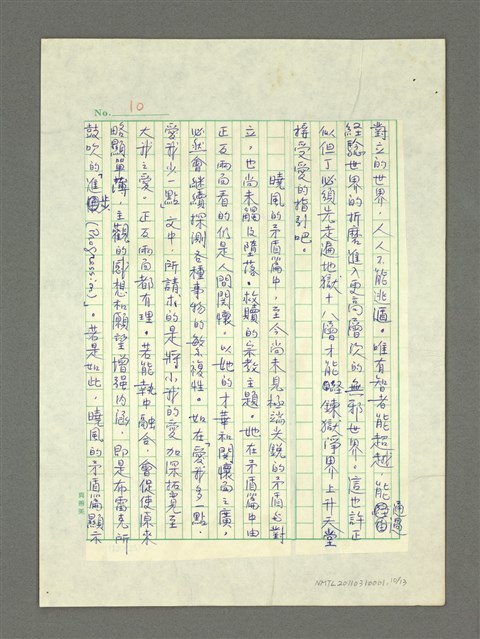 No. 10
對立的世界，人人不能逃遁。唯有智者能超越，能通過
經驗世界的折磨進入更高層次的無邪世界。這也許正
似但丁必須先走遍地獄十八層才能經煉獄淨界上升天堂
接受愛的指引吧。
曉風的矛盾篇中，至今尚未見極端尖銳的矛盾與對
立，也尚未觸及墮落。救贖的宗教主題。她在矛盾篇中由
正反兩面看的仍是人間關懷，以她的才華和關懷面之廣，
必然會繼續探測各種事物的繁複性。如在「愛我多一點，
愛我少一點」文中，所請求的是將小我的愛加深拓寬至
大我之愛。正反兩面都有理。若能執中融合，會促使原來
略顯單薄，主觀的感想和願望增強內涵，即是布雷克所
鼓吹的「進步(Progression)」。若是如此，曉風的矛盾篇顯示
NMTL20110310001 10/13